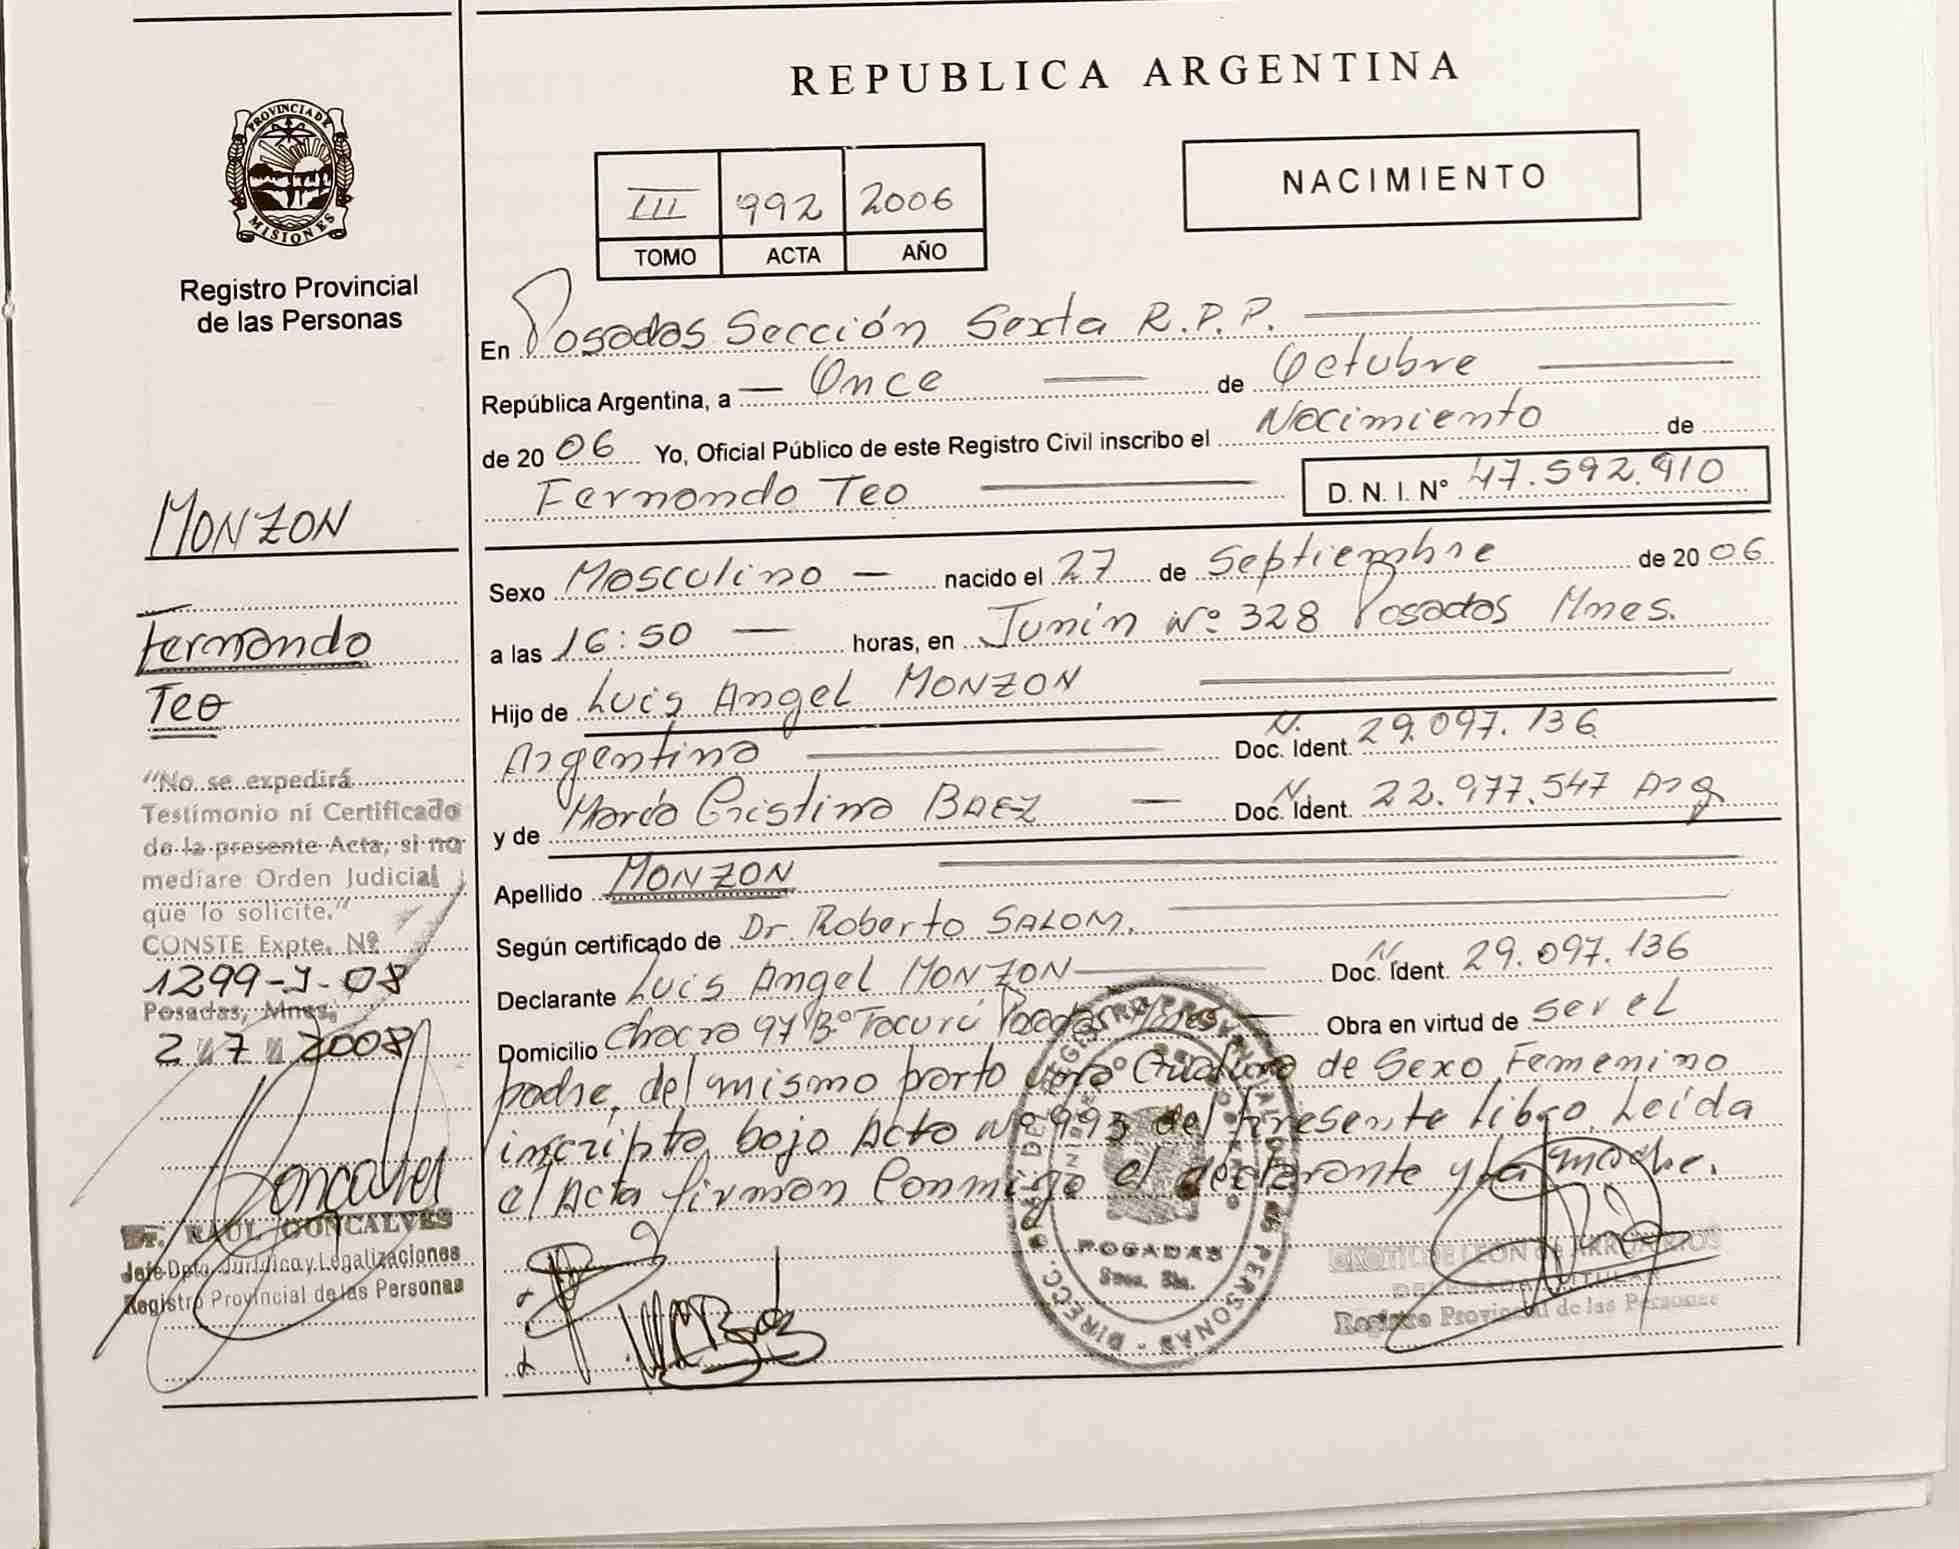 REPUBLICA ARGENTINA
PROVINCIA DE
MISIONES
Registro Provincial
de las Personas
III 992 2006
TOMO ACTA AÑO
NACIMIENTO
En Posadas Sección Sexta R.P.P.
República Argentina, a Once de Octubre
de 2006 Yo, Oficial Público de este Registro Civil inscribo el Nacimiento de
Fernando Teo D. N. I. N° 47.592.910
Sexo Masculino nacido el 27 de Septiembre de 2006
a las 16:50 horas, en Junín Nº 328 Posadas Mnes.
Hijo de Luis Angel MONZON
Argentino Doc. Ident. N. 29.097.136
y de María Cristina BAEZ Doc. Ident. N. 22.977.547 Arg
Apellido MONZON
Según certificado de Dr. Roberto SALOM.
Declarante Luis Angel MONZON Doc. Ident. N. 29.097.136
Domicilio Chacra 97 Bº Tacurú Posadas Mnes Obra en virtud de ser el
padre, del mismo parto una Criatura de Sexo Femenino
inscripta bajo Acta Nº 993 del presente libro. Leída
el Acta firman Conmigo el declarante y la madre.
MONZON
Fernando
Teo
"No se expedirá
Testimonio ni Certificado
de la presente Acta, si no
mediare Orden Judicial
que lo solicite."
CONSTE Expte. Nº
1299-J-08
Posadas, Mnes.
2 7 2008
Goncalves
Dr. RAUL GONCALVES
Jefe Dpto. Jurídico y Legalizaciones
Registro Provincial de las Personas
POSADAS
Secc. 6ta.
Registro Provincial de las Personas